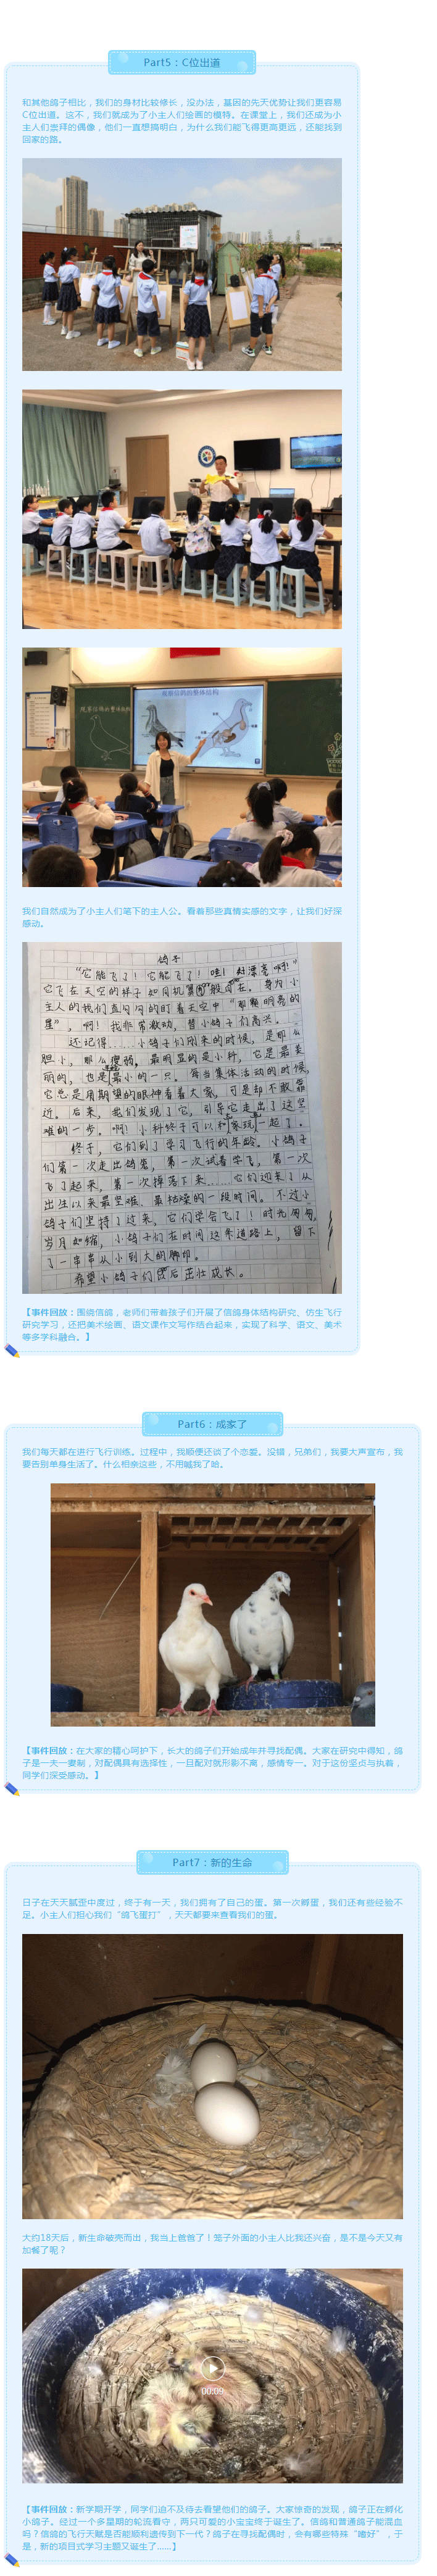 Part5：C位出道
和其他鸽子相比，我们的身材比较修长，没办法，基因的先天优势让我们更容易
C位出道。这不，我们就成为了小主人们绘画的模特。在课堂上，我们还成为小
主人们崇拜的偶像，他们一直想搞明白，为什么我们能飞得更高更远，还能找到
回家的路。
观察信鸽的整体结构
我们自然成为了小主人们笔下的主人公。看着那些真情实感的文字，让我们好深
感动。
鸽子
“它能飞了！它能飞了！哇！好漂亮啊！”
它飞在天空的样子如同机翼般闪在。身为小
主人的我们直勾勾的盯着天空中“那颗明亮的
星”，啊！我非常激动，替小鸽子们高兴。
还记得……小鸽子们刚来的时候，是那么
胆小，那么瘦弱，最明显的是小科，它是最美
丽的，也是最小的一只。每当集体活动的时候，
它总是用期望的眼神看着大家，可是却不敢靠
近。后来，我们发现了它，引导它走出了这坚
难的一步。啊！小科终于可以和家玩一起了。
终于，它们到了学习飞行的年龄。小鸽子
们第一次走出鸽笼，第一次试着学飞，第一次
飞了起来，第一次掉落下来……它们迎来了从
出生以来最坚难、最枯燥的一段时间。不过小
鸽子们坚持了过来，它们学会飞了！时光匆匆，
岁月如梭，小鸽子们在时间这条道路上，留下
了一串串从小到大的脚印。
希望小鸽子们以后茁壮成长。
【事件回放：围绕信鸽，老师们带着孩子们开展了信鸽身体结构研究、仿生飞行
研究学习，还把美术绘画、语文课作文写作结合起来，实现了科学、语文、美术
等多学科融合。】
Part6：成家了
我们每天都在进行飞行训练。过程中，我顺便还谈了个恋爱。没错，兄弟们，我要大声宣布，我
要告别单身生活了。什么相亲这些，不用喊我了哈。
【事件回放：在大家的精心呵护下，长大的鸽子们开始成年并寻找配偶。大家在研究中得知，鸽
子是一夫一妻制，对配偶具有选择性，一旦配对就形影不离，感情专一。对于这份坚贞与执着，
同学们深受感动。】
Part7：新的生命
日子在天天腻歪中度过，终于有一天，我们拥有了自己的蛋。第一次孵蛋，我们还有些经验不
足。小主人们担心我们“鸽飞蛋打”，天天都要来查看我们的蛋。
大约18天后，新生命破壳而出，我当上爸爸了！笼子外面的小主人比我还兴奋，是不是今天又有
加餐了呢？
00:09
【事件回放：新学期开学，同学们迫不及待去看望他们的鸽子。大家惊奇的发现，鸽子正在孵化
小鸽子。经过一个多星期的轮流看守，两只可爱的小宝宝终于诞生了。信鸽和普通鸽子能混血
吗？信鸽的飞行天赋是否能顺利遗传到下一代？鸽子在寻找配偶时，会有哪些特殊“嗜好”，于
是，新的项目式学习主题又诞生了......】